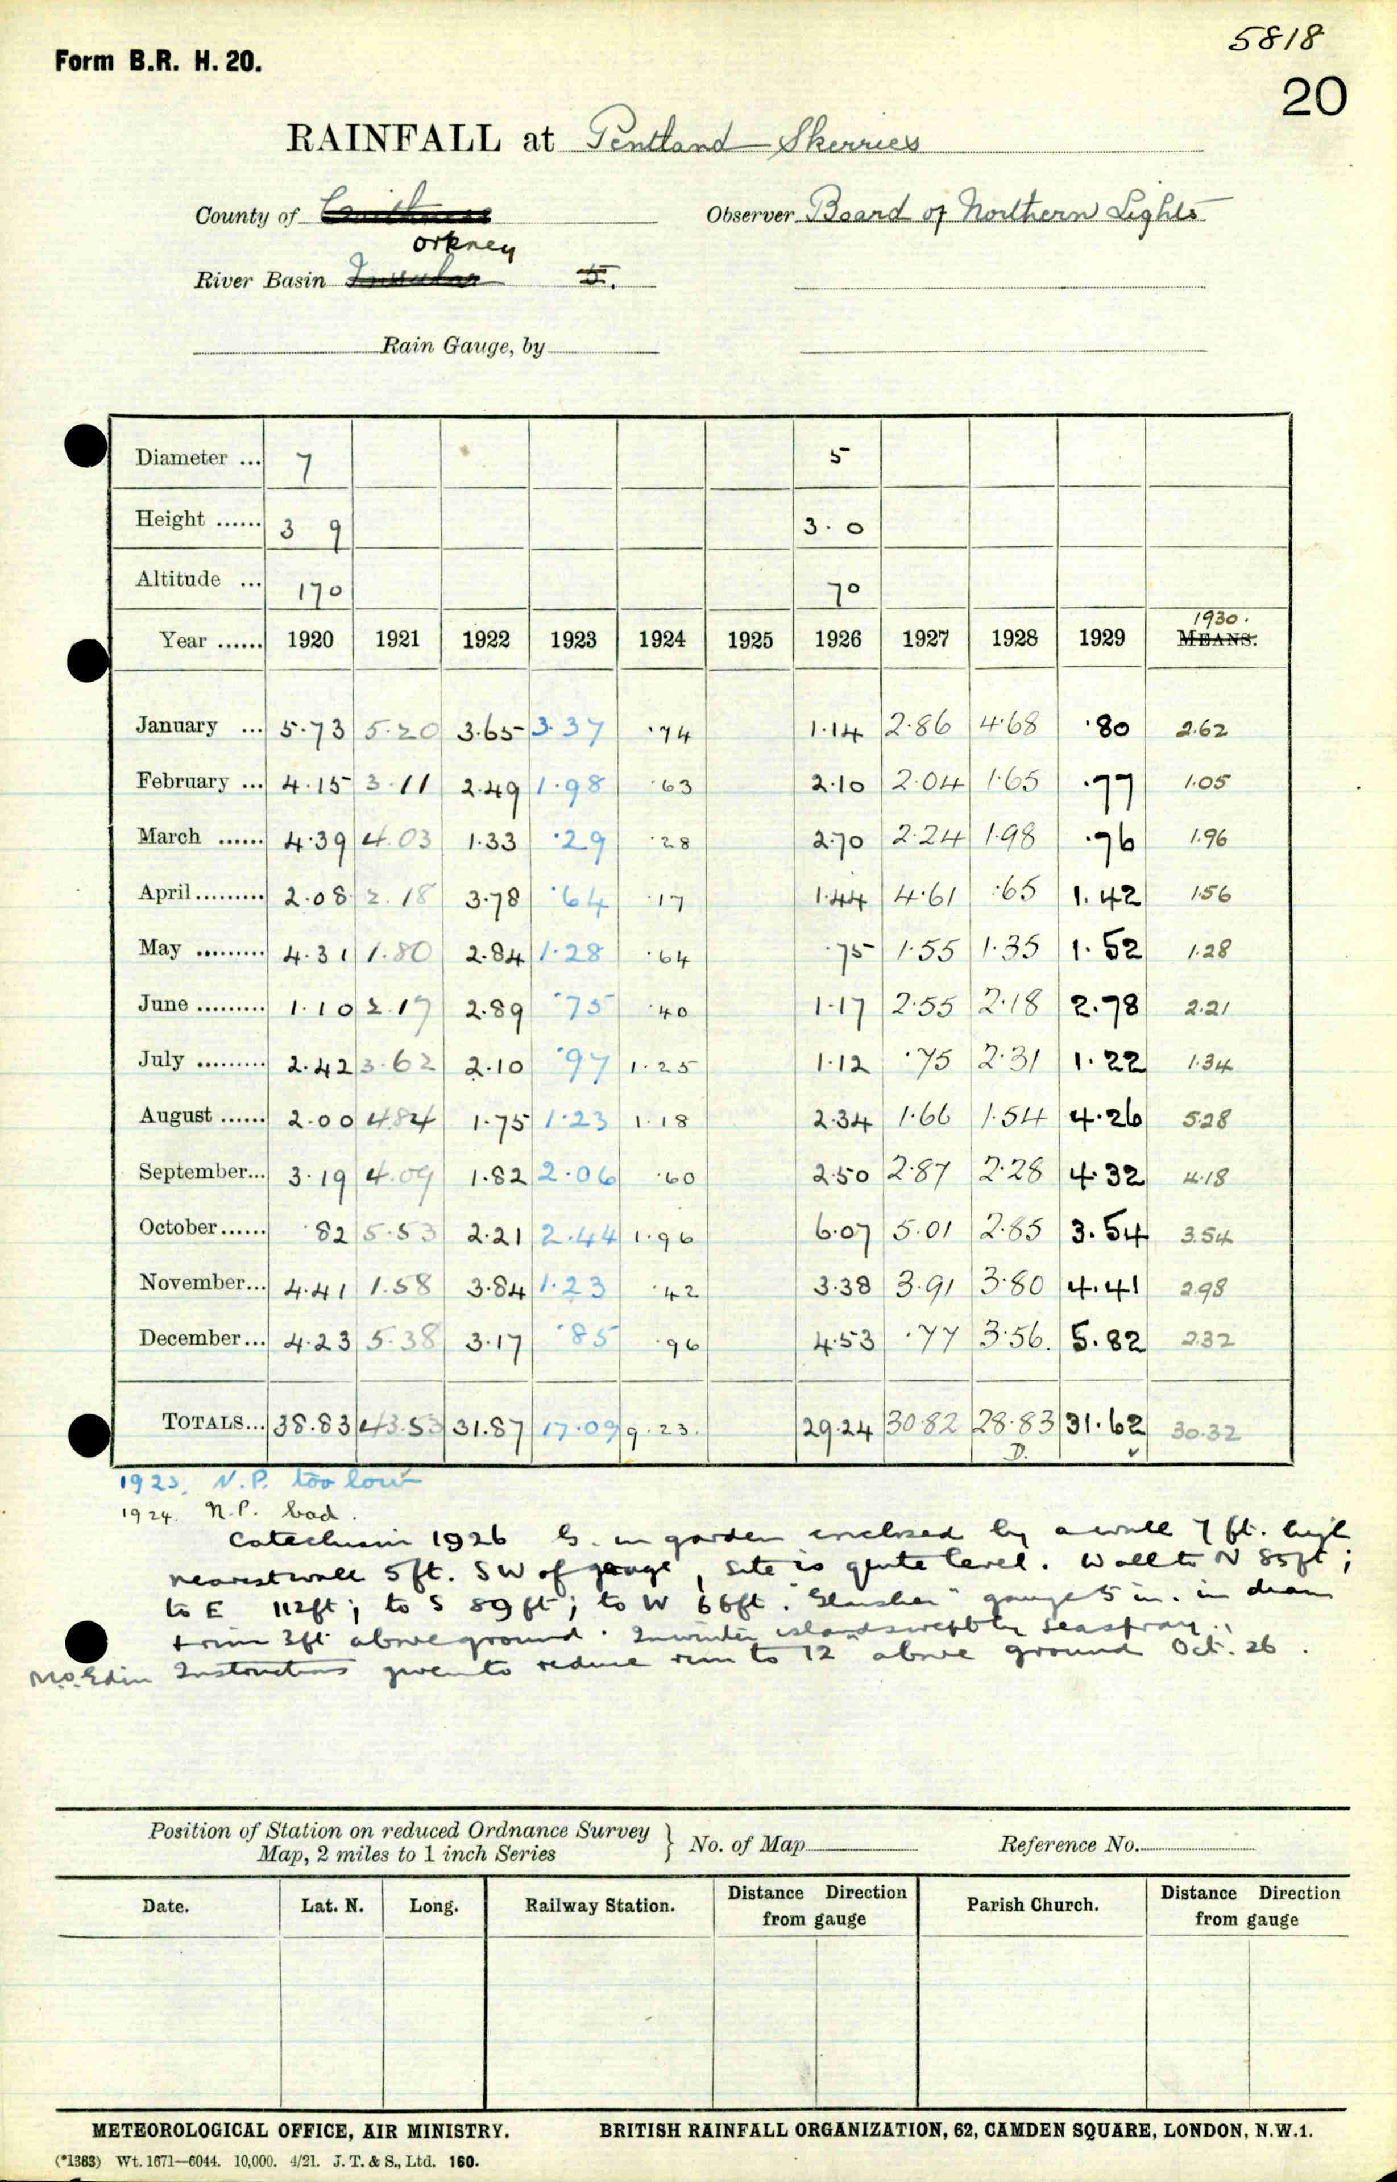 5818
Form B.R. H. 20.
20
RAINFALL at Pentland Skerries
County of Caithness Observer Board of Northern Lights
Orkney
River Basin Insular 5.
Rain Gauge, by
Diameter ... 7 5
Height ...... 3 9 3. 0
Altitude ... 170 70
1930.
Year ...... 1920 1921 1922 1923 1924 1925 1926 1927 1928 1929 MEANS.
January ... 5.73 5.20 3.65 3.37 .74 1.14 2.86 4.68 .80 2.62
February ... 4.15 3.11 2.49 1.98 .63 2.10 2.04 1.65 .77 1.05
March ...... 4.39 4.03 1.33 .29 .28 2.70 2.24 1.98 .76 1.96
April ......... 2.08 2.18 3.78 .64 .17 1.44 4.61 .65 1.42 1.56
May ......... 4.31 1.80 2.84 1.28 .64 .75 1.55 1.35 1.52 1.28
June ......... 1.10 2.17 2.89 .75 .40 1.17 2.55 2.18 2.78 2.21
July ......... 2.42 3.62 2.10 .97 1.25 1.12 .75 2.31 1.22 1.34
August ...... 2.00 4.84 1.75 1.23 1.18 2.34 1.66 1.54 4.26 5.28
September... 3.19 4.09 1.82 2.06 .60 2.50 2.87 2.28 4.32 4.18
October...... .82 5.53 2.21 2.44 1.96 6.07 5.01 2.85 3.54 3.54
November... 4.41 1.58 3.84 1.23 .42 3.38 3.91 3.80 4.41 2.98
December... 4.23 5.38 3.17 .85 .96 4.53 .77 3.56. 5.82 2.32
TOTALS... 38.83 43.53 31.87 17.09 9.23. 29.24 30.82 28.83 31.62 30.32
D. ✓
1923. N.P. too low
1924. N.P. bad.
Catechism 1926 G. in garden enclosed by a wall 7 ft. high
nearest wall 5ft. SW of gauge, site is quite level. Wall to N 85ft;
to E 112ft; to S 89ft; to W 66ft. "" gauge 5 in. in diam
& rim 3ft above ground. In winter island swept by seaspray.
M.O. Edin Instructions given to reduce rim to 12" above ground Oct. 26.
Position of Station on reduced Ordnance Survey
Map, 2 miles to 1 inch Series } No. of Map Reference No.
Date. Lat. N. Long. Railway Station. Distance Direction from gauge Parish Church. Distance Direction from gauge
METEOROLOGICAL OFFICE, AIR MINISTRY. BRITISH RAINFALL ORGANIZATION, 62, CAMDEN SQUARE, LONDON, N.W.1.
(*1383) Wt. 1671—6044. 10,000. 4/21. J. T. & S., Ltd. 160.